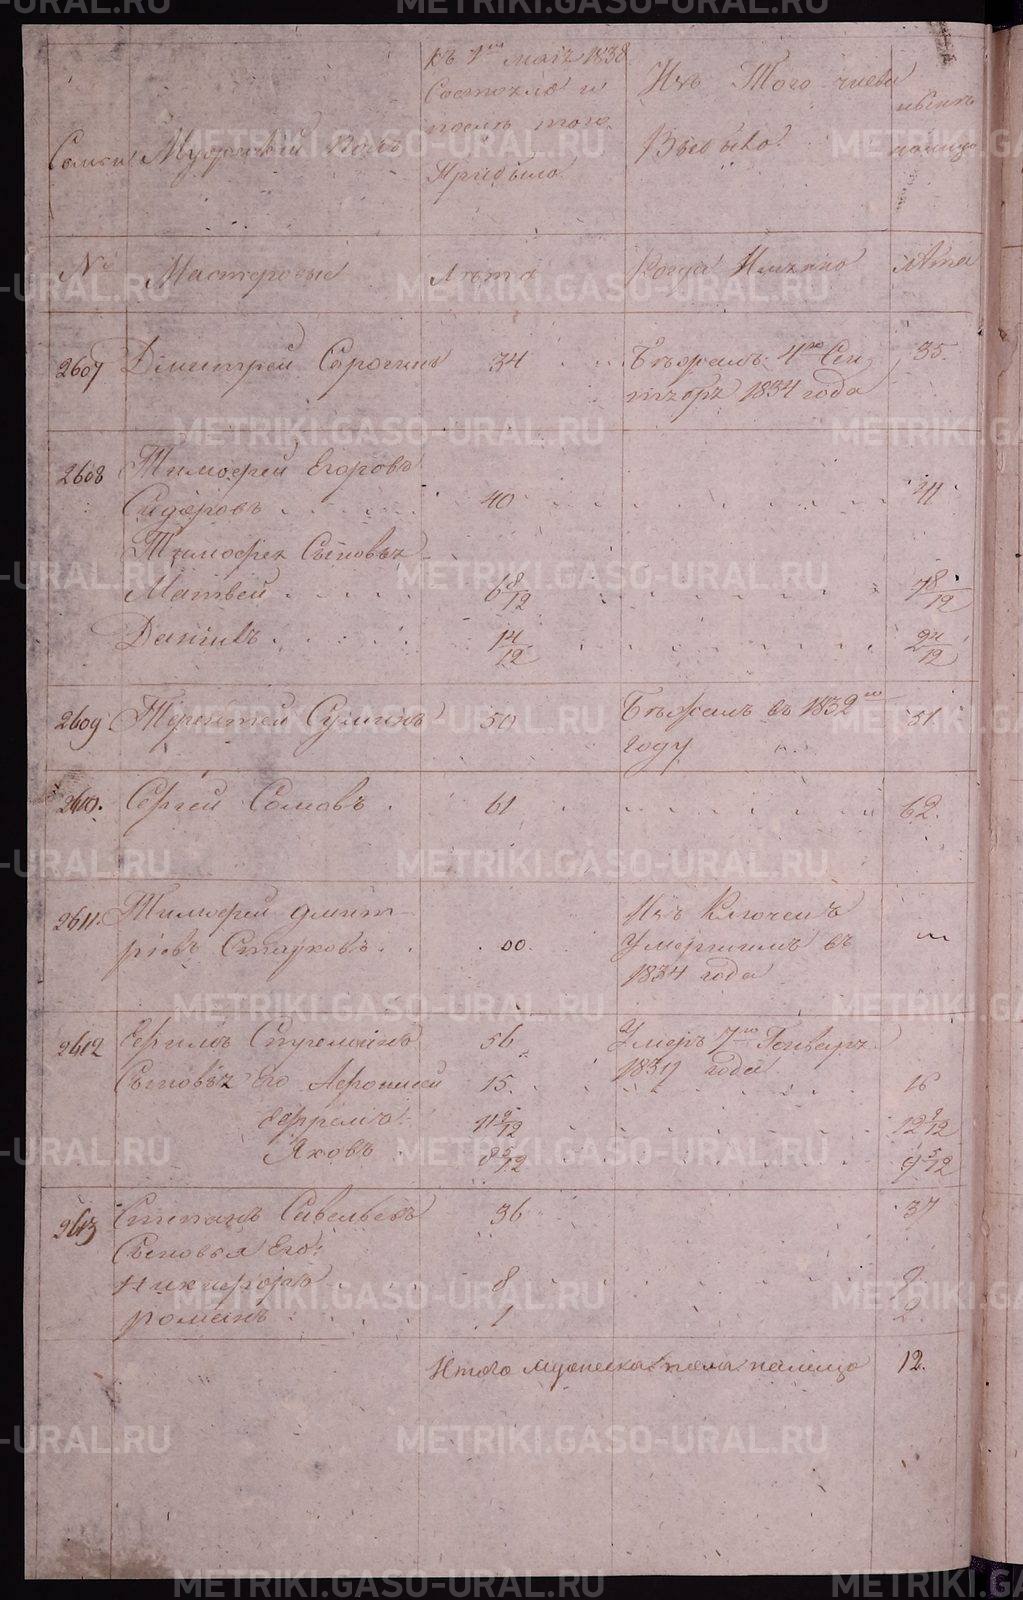 Семьи
Мужеский полъ
къ 1му маія 1838
Состояло и
послѣ того
Прибыло
Изъ Того числа
Выбыло
нынѣ
налицо
№
Мастеровые
Лѣта
Когда Именно
Лѣта
2607 Дмитрей Сорочинъ 34 Бѣжалъ 4го Сен 35.
тября 1834 года
2608 Тимофей Егоровъ
Сидоровъ 40 41
Тимофея Сыновья
Матвей 6 8/12 7 8/12
Данилъ 1 4/12 2 4/12
2609 Терентей Суминъ 50 Бѣжалъ въ 1832мъ 51
году
2610. Сергей Сомовъ 61 62.
2611. Тимофей Дмит
ріевъ 00. Изъ Ключей
умершимъ въ
1834 года
2612 56 Умеръ 7го Генваря
1837 года
Сыновья Его 15. 16
Ефремъ 11 9/12 12 9/12
Яковъ 8 5/12 9 5/12
2613 Степанъ Савельевъ 36 37
Сыновья Его:
Никифоръ 8 9
Романъ 1 2
Итого мужеска пола налицо 12.
METRIKI.GASO-URAL.RU